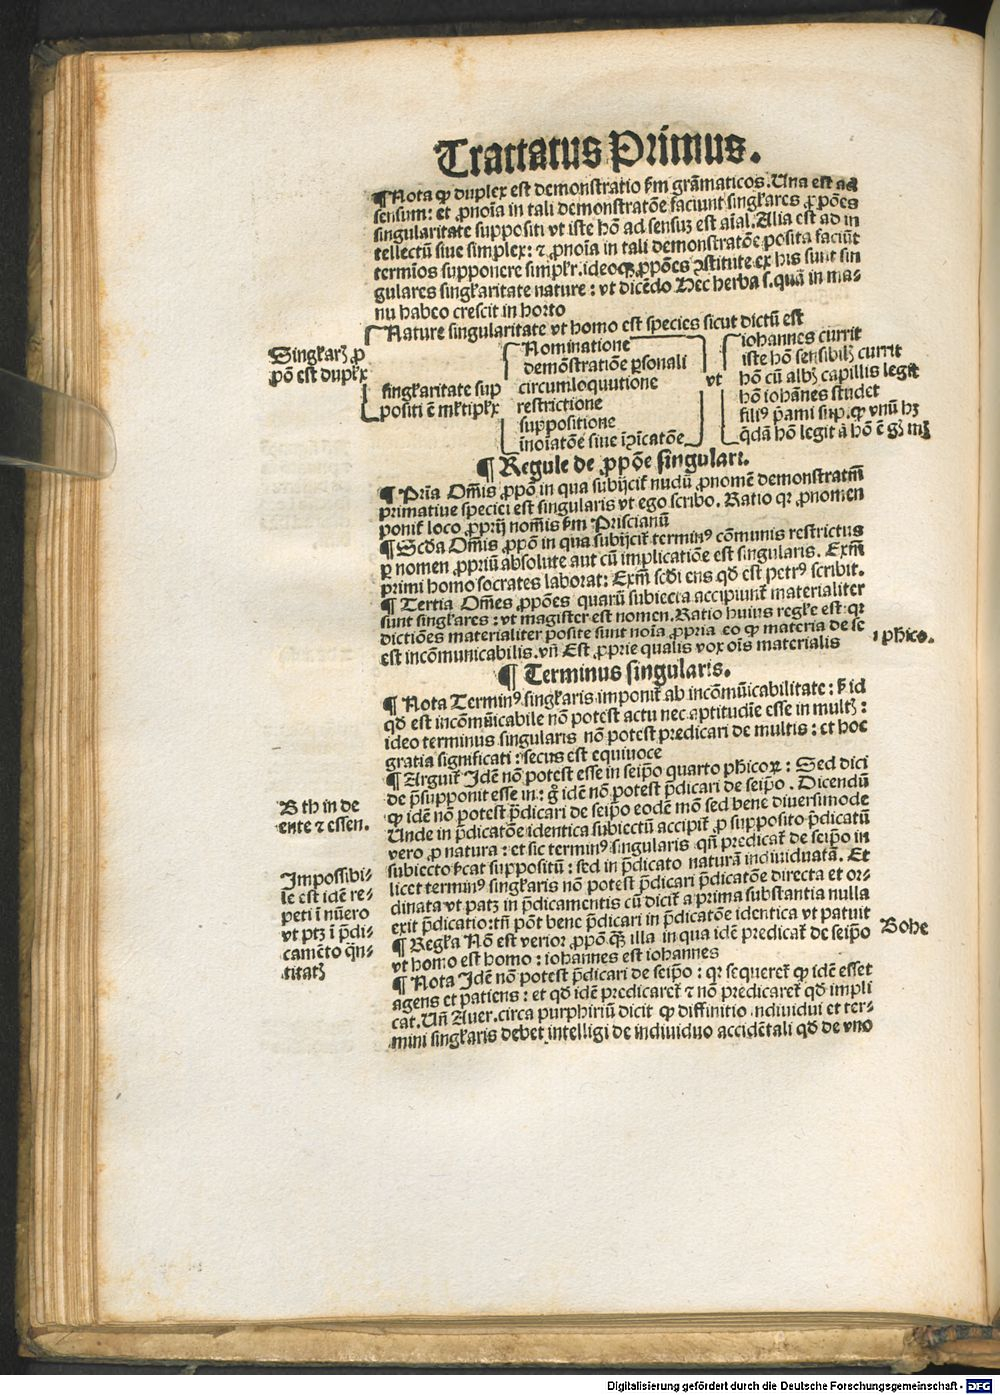 Tractatus Primus.
¶Nota ꝙ duplex est demonstratio ẜm grãmaticos. Una est ad
sensum: et ꝓnoĩa in tali demonstratõe faciunt singkares ꝓpões
singularitate suppositi vt iste hõ ad sensuʒ est aĩal. Alia est ad in
tellectũ siue simplex: ⁊ ꝓnoĩa in tali demonstratõe posita faciũt
termĩos supponere simpkr. ideoqꝫ ꝓpões ꝯstitute ex his sunt sin
gulares singkaritate nature: vt dicẽdo Hec herba s. quã in ma-
nu habeo crescit in horto
Nature singularitate vt homo est species sicut dictũ est
Singkarꝫ ꝓ
põ est dupkx
singkaritate sup
positi ẽ mktipkx
Nominatione
demõstratiõe ꝑsonali
circumloquutione
restrictione
suppositione
ĩnoĩatõe siue
vt
iohannes currit
iste hõ sensibilꝫ currit
hõ cũ albꝫ capillis legit
hõ iohãnes studet
filiꝰ p̃ami sup. ꝙ vnũ hꝫ
q̃dã hõ legit
¶ Regule de ꝓpõe singulari.
¶ Pr̃ia Om̃is ꝓpõ in qua subijcit̃ nudũ ꝓnomẽ demonstratiũ
primatiue speciei est singularis vt ego scribo. Ratio qꝛ ꝓnomen
ponit̃ loco ꝓprij nom̃is ẜm Priscianũ
¶ Scd̃a Om̃is ꝓpõ in qua subijcit̃ terminꝰ cõmunis restrictus
ꝑ nomen ꝓpriũ absolute aut cũ implicatiõe est singularis. Exm̃
primi homo socrates laborat: Exm̃ scd̃i ens qd̃ est petrꝰ scribit.
¶ Tertia Om̃es ꝓpões quarũ subiecta accipiunt̃ materialiter
sunt singkares: vt magister est nomen. Ratio huius regke est qꝛ
dictiões materialiter posite sunt noĩa ꝓpria eo ꝙ materia de se
est incõmunicabilis. vñ Est ꝓprie qualis vox oĩs materialis
1 ph̃ico.
¶ Terminus singularis.
¶ Nota Terminꝰ singkaris imponit̃ ab incõmũicabilitate: ẜ id
qd̃ est incõmũicabile nõ potest actu nec aptitudĩe esse in multꝫ:
ideo terminus singularis nõ potest predicari de multis: et hoc
gratia significati: secus est equiuoce
¶ Arguit̃ Idẽ nõ potest esse in seip̃o quarto ph̃icoꝝ: Sed dici
de p̃supponit esse in: g̊ idẽ nõ potest p̃dicari de seip̃o. Dicendũ
ꝙ idẽ nõ potest p̃dicari de seip̃o eodẽ mõ sed bene diuersimode
Unde in p̃dicatõe identica subiectũ accipit̃ ꝓ supposito p̃dicatũ
vero ꝓ natura: et sic terminꝰ singularis qñ predicat̃ de seip̃o in
subiecto ẜcat suppositũ: sed in p̃dicato naturã indiuiduatã. Et
licet terminꝰ singkaris nõ potest p̃dicari p̃dicatõe directa et or-
dinata vt patꝫ in p̃dicamentis cũ dicit̃ a prima substantia nulla
exit p̃dicatio: tñ põt bene p̃dicari in p̃dicatõe identica vt patuit
B th in de
ente ⁊ essen.
Impossibi-
le est idẽ re-
peti ĩ nũero
vt ptꝫ ĩ p̃di-
camẽto q̃n-
titatꝫ
¶ Regka Nõ est verior ꝓpõ qꝫ illa in qua idẽ predicat̃ de seip̃o
vt homo est homo: iohannes est iohannes
Bohe
¶ Nota Idẽ nõ potest p̃dicari de seip̃o: qꝛ sequeret̃ ꝙ idẽ esset
agens et patiens: et qd̃ idẽ predicaret̃ ⁊ nõ predicaret̃ qd̃ impli
cat. Uñ Auer. circa purphiriũ dicit ꝙ diffinitio indiuidui et ter-
mini singkaris debet intelligi de indiuiduo accidẽtali qd̃ de vno
Digitalisierung gefördert durch die Deutsche Forschungsgemeinschaft - DFG